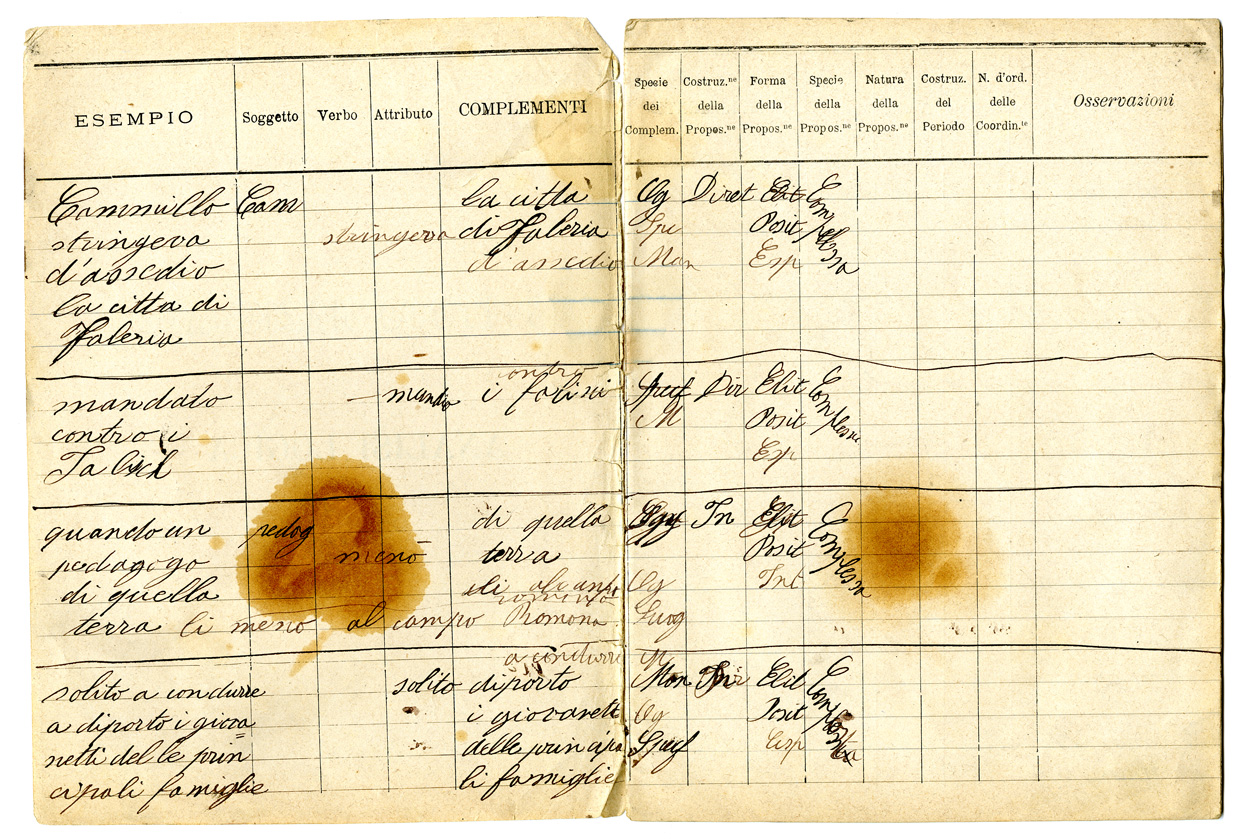 ESEMPIO Soggetto Verbo Attributo COMPLEMENTI
Specie dei Complem. Costruz.ne della Propos.ne Forma della Propos.ne Specie della Propos.ne Natura della Propos.ne Costruz. del Periodo N. d'ord. delle Coordin.te Osservazioni
Cammillo Cam la citta Og Diret Elit Complessa
stringeva stringeva di Faleria Spe Posit
d'assedio d'assedio Man Esp
la citta di
Faleria
contro
mandato manda i falisci Specif Dir Elit Complessa
contro i M Posit
Esp
quando un pedog di quella In Elit Complessa
pedagogo menò terra Posit
di quella Og Int
terra li meno al campo Romano Luog
a condurre M
solito a condurre solito diporto Man Elit Complessa
a diporto i giova i giovanett Og Posit
netti delle prin delle principa Specif Esp
cipali famiglie li famiglie